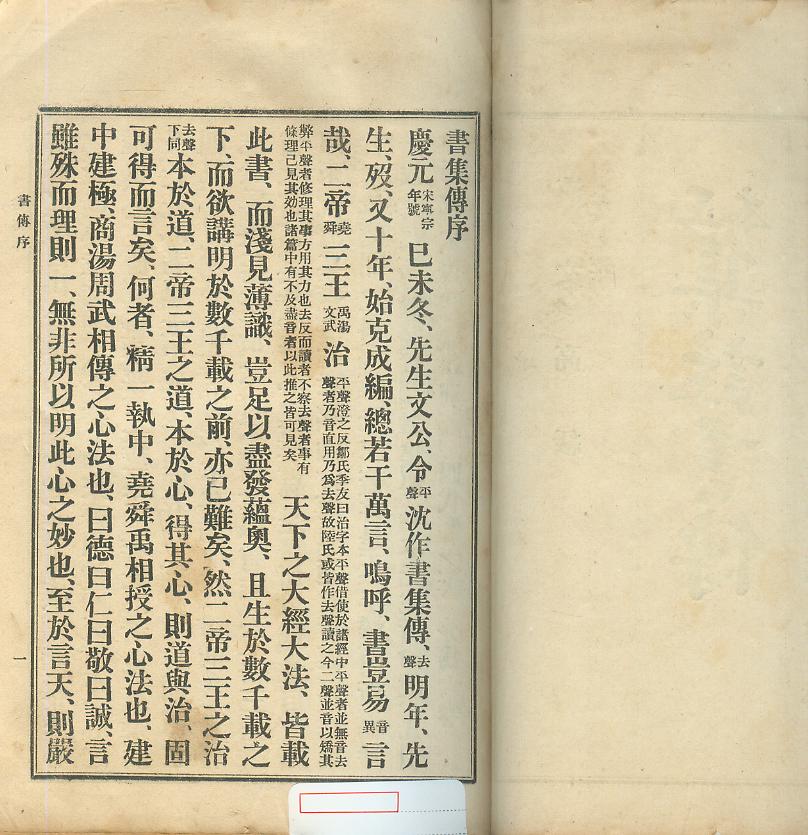 書集傳序
慶元宋寧宗年號巳未冬、先生文公、令平聲沈作書集傳、去聲明年、先
生、歿、又十年、始克成編、總若干萬言、嗚呼、書豈易音異言
哉、二帝堯舜三王禹湯文武治平聲澄之反鄒氏季友曰治字本平聲借使於諸經中平聲者並無音去聲者乃音直用乃爲去聲故陸氏或皆作去聲讀之今二聲並音以矯其
弊平聲者修理其事方用其力也去反而讀者不察去聲者事有條理已見其効也諸篇中有不及盡音者以此推之皆可見矣天下之大經大法、皆載
此書、而淺見薄識、豈足以盡發蘊奧、且生於數千載之
下、而欲講明於數千載之前、亦已難矣、然二帝三王之治
去聲下同本於道、二帝三王之道、本於心、得其心、則道與治、固
可得而言矣、何者、精一執中、堯舜禹相授之心法也、建
中建極、商湯周武相傳之心法也、曰德曰仁曰敬曰誠、言
雖殊而理則一、無非所以明此心之妙也、至於言天、則嚴
書傳序
一